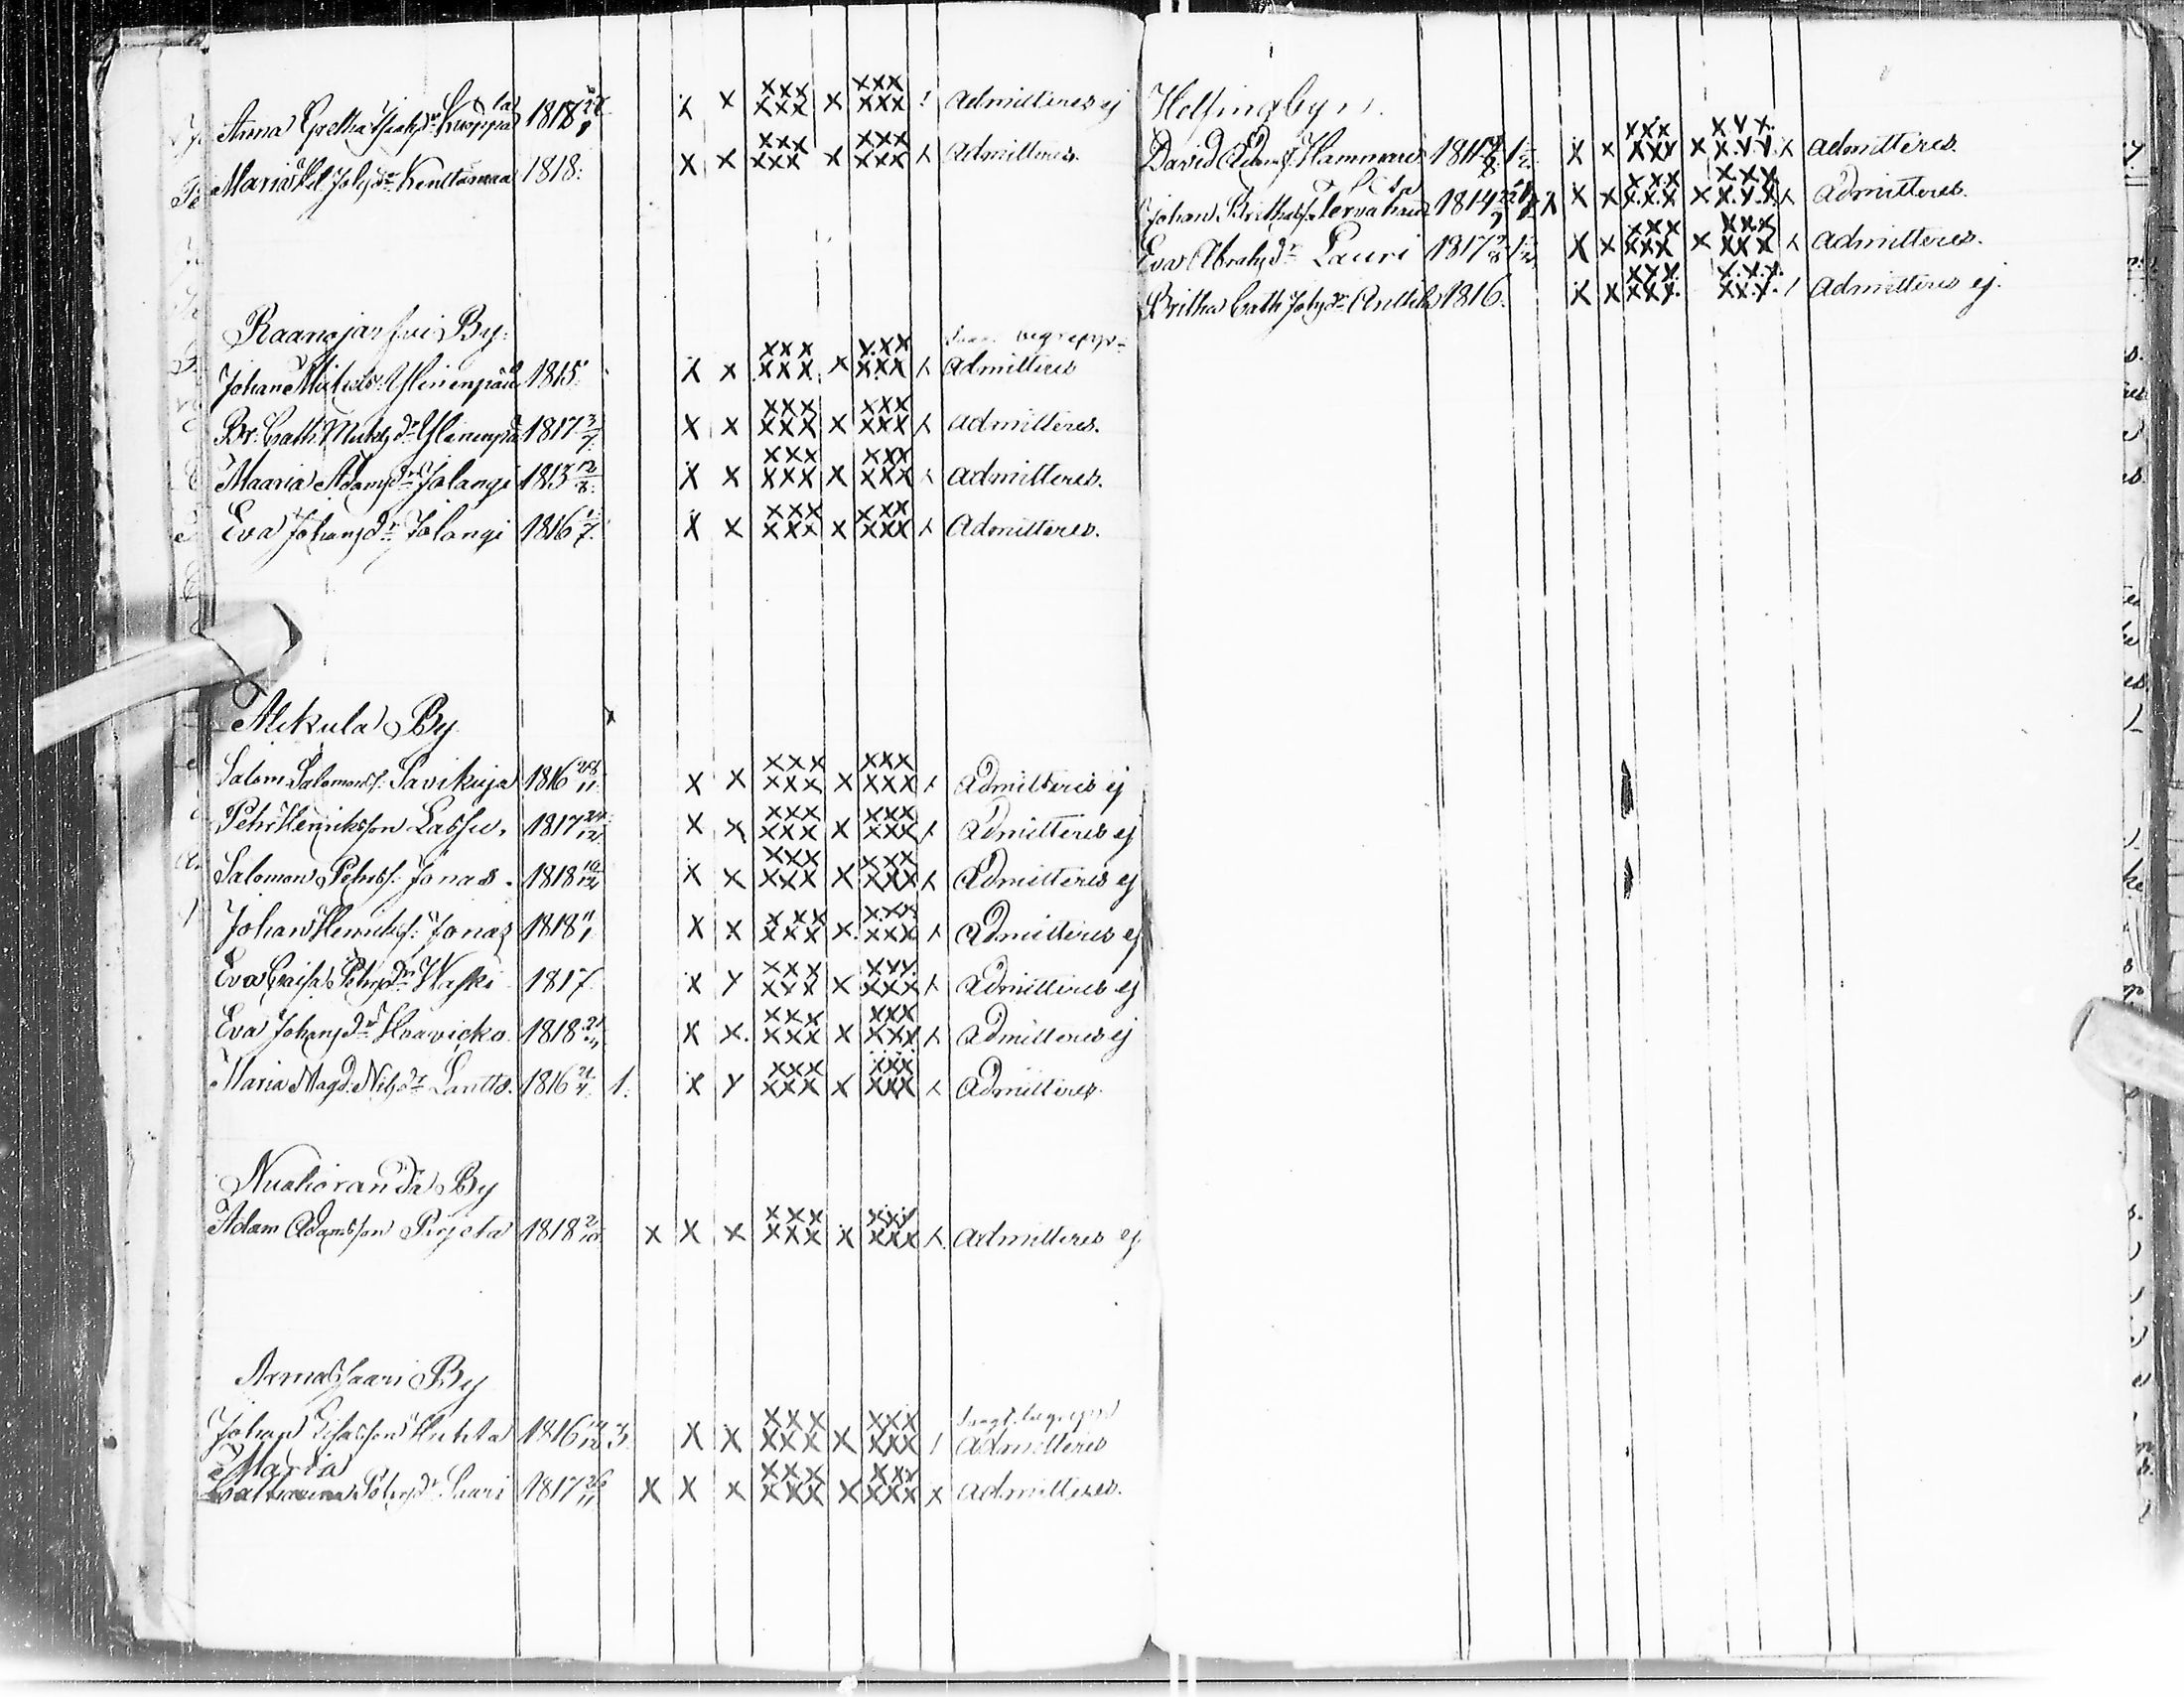 Anna Gretha Isaksdr Kuoppa 1818 x x xxx xxx x xxx xxx Admitteres ej
Maria Joh:dr Kenttämaa 1818. x x xxx xxx x xxx xxx x Admitteres.
Raanojärfvi By.
Johan Michels. Ylinenpää 1815. x x xxx xxx x xxx xxx x Admitteres
Br: Cath: Michsdr Ylinenpää 1817 3/7. x x xxx xxx x xxx xxx x Admitteres.
Maaria Adamsdr Jolangi 1813 12/8. x x xxx xxx x xxx xxx x Admitteres.
Eva Johansdr Jolangi 1816 1/7. x x xxx xxx x xxx xxx x Admitteres.
Alkula By
Salom Salomonss. Savikuja 1816 28/11. x x xxx xxx x xxx xxx x Admitteres ej
Pehr Henriksson Lassu. 1817 24/12. x x xxx xxx x xxx xxx x Admitteres ej
Salomon Pehrss. Jonas. 1818 10/12 x x xxx xxx x xxx xxx x Admitteres ej
Johan Henriks: Jonas 1818 x x xxx xxx x xxx xxx x Admitteres ej
Eva Caisa Pehrsdr 1817. x x xxx xxx x xxx xxx x Admitteres ej
Eva Johansdr Haavicko 1818 x x. xxx xxx x xxx xxx x Admitteres ej
Maria Magd. Nilsdr Lantto. 1816 1. x x xxx xxx x xxx xxx x Admitteres.
Nuotioranda By
Adam Adamsson 1818 x x x xxx xxx x xxx xxx x Admitteres ej
Armassaari By
Johan Huhta 1816 3. x x xxx xxx x xxx xxx Admitteres
Maria
Catharina Johsdr Saari 1817 26/11 x x x xxx xxx x xxx xxx x Admitteres.
Helsingbyn.
David Adamss. Hammari x x xxx xxx x xxx xxx x Admitteres.
Johan Brithass. Tervahau 1814 x x x xxx xxx x xxx xxx x Admitteres.
Eva Abrahsdr Lauri 1817 x x xxx xxx x xxx xxx x Admitteres.
Britha Cath Johsdr Anttila 1816. x x xxx xxx. xxx xxx. Admitteres ej.